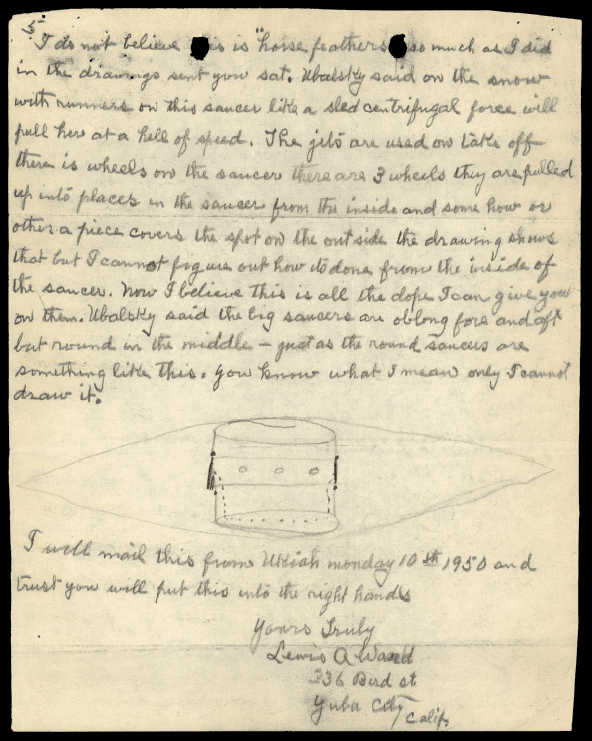 5
I do not believe is "horse feathers" so much as I did
in the drawings sent you sat. Ubalsky said on the snow
with runners on this saucer like a sled centrifugal force will
pull here at a hell of speed. The jets are used on take off
there is wheels on the saucer there are 3 wheels they are pulled
up into places in the saucer from the inside and some how or
other a piece covers the spot on the outside the drawing shows
that but I cannot figure out how its done from the inside of
the saucer. Now I believe this is all the dope I can give you
on them. Ubalsky said the big saucers are oblong fore and aft
but round in the middle – just as the round saucers are
something like this. you know what I mean only I cannot
draw it.
I will mail this from Ukiah monday 10th 1950 and
trust you will put this into the right hands
Yours Truly
Lewis A
336 Bird st
Yuba City Calif.